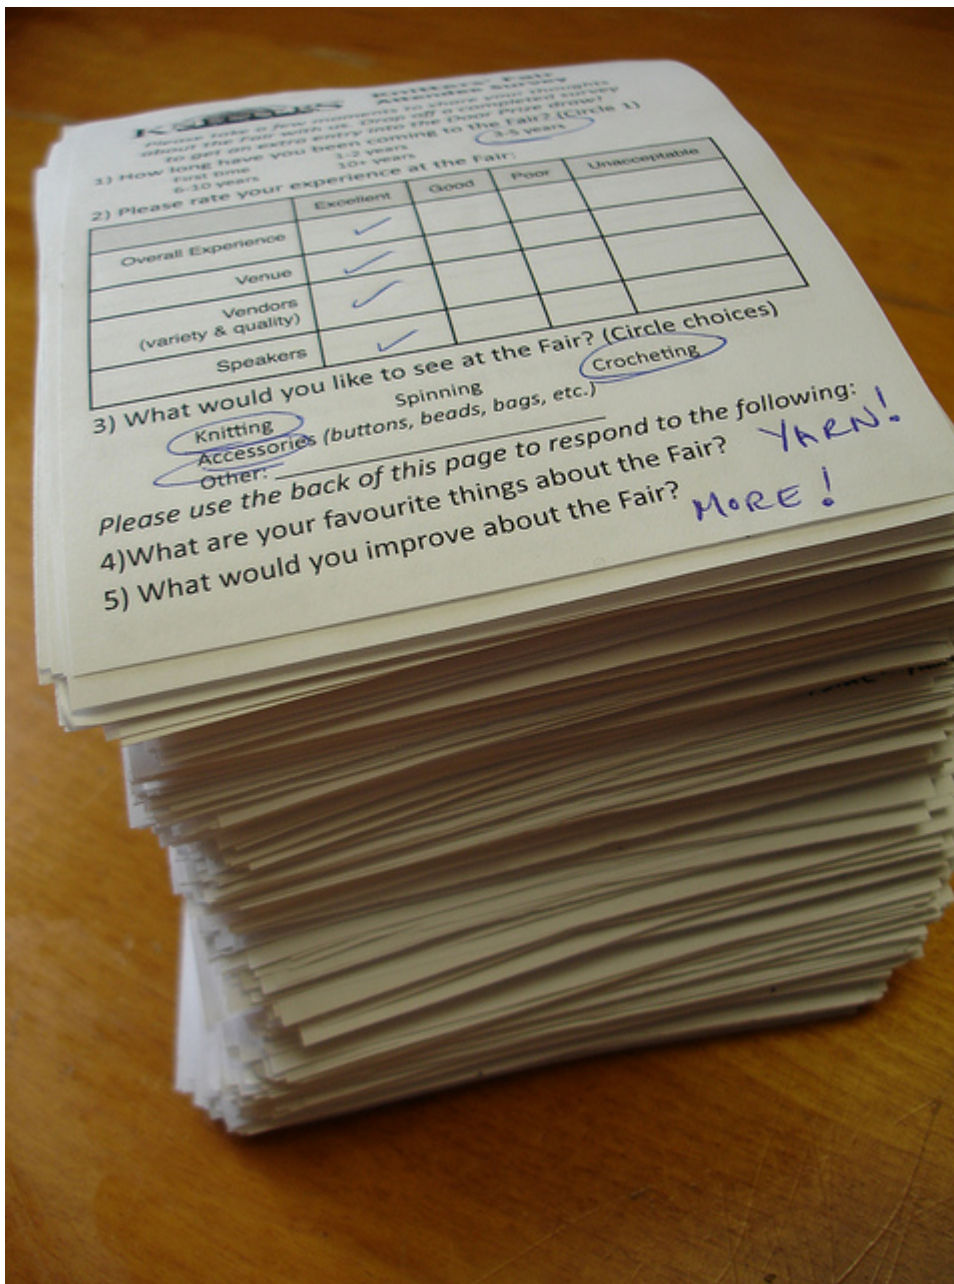 Knitters' Fair
Attendee Survey
Please take a few moments to share your thoughts
about the Fair with us. Drop off a completed survey
to get an extra entry into the Door Prize draw!
1) How long have you been coming to the Fair? (Circle 1)
First time 1-2 years 3-5 years
6-10 years 10+ years
2) Please rate your experience at the Fair:
Excellent Good Poor Unacceptable
Overall Experience
Venue
Vendors
(variety & quality)
Speakers
3) What would you like to see at the Fair? (Circle choices)
Knitting Spinning Crocheting
Accessories (buttons, beads, bags, etc.)
Other:
Please use the back of this page to respond to the following:
4)What are your favourite things about the Fair? YARN!
5) What would you improve about the Fair? MORE!